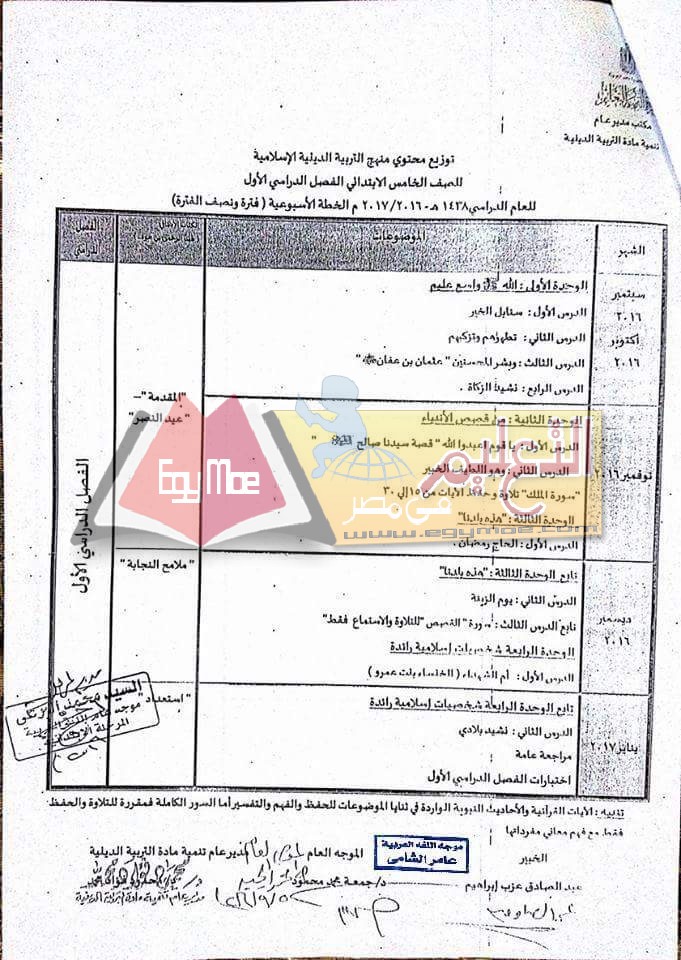 مكتب مدير عام
تنمية مادة التربية الدينية
توزيع محتوي منهج التربية الدينية الإسلامية
للصف الخامس الابتدائي الفصل الدراسي الأول
للعام الدراسي ١٤٣٨ هـ - ٢٠١٧/٢٠١٦ م الخطة الأسبوعية ( فترة ونصف الفترة )
الشهر
الموضوعات
الفصل الدراسي
سبتمبر
٢٠١٦
أكتوبر
٢٠١٦
الوحدة الأولى : الله واسع عليم
الدرس الأول : سنابل الخير
الدرس الثاني : تطهرهم وتزكيهم
الدرس الثالث : وبشر المحسنين " عثمان بن عفان "
الدرس الرابع : نشيد الزكاة .
"المقدمة" –
"عيد النصر"
نوفمبر ٢٠١٦
الوحدة الثانية : من قصص الأنبياء
الدرس الأول : يا قوم اعبدوا الله " قصة سيدنا صالح "
الدرس الثاني : وهو اللطيف الخبير
"سورة الملك" تلاوة وحفظ الآيات من ١٥ إلى ٣٠
الوحدة الثالثة : "هذه بلدنا"
الدرس الأول : الحاج رمضان .
التعليم
في مصر
EgyMoe
www.egymoe.com
ديسمبر
٢٠١٦
تابع الوحدة الثالثة : "هذه بلدنا"
الدرس الثاني : يوم الزينة
تابع الدرس الثالث : سورة "القصص "للتلاوة والاستماع فقط"
الوحدة الرابعة شخصيات إسلامية رائدة
الدرس الأول : أم الشهداء ( الخنساء بنت عمرو )
"ملامح النجابة"
الفصل الدراسي الأول
يناير ٢٠١٧
تابع الوحدة الرابعة شخصيات إسلامية رائدة
الدرس الثاني : نشيد بلادي
مراجعة عامة
اختبارات الفصل الدراسي الأول
"استعداد"
تنبيه : الآيات القرآنية والأحاديث النبوية الواردة في ثنايا الموضوعات للحفظ والفهم والتفسير أما السور الكاملة فمقررة للتلاوة والحفظ
فقط مع فهم معاني مفرداتها
الخبير
عبد الصادق عزب إبراهيم
موجه اللغه العربية
عامر الشامى
الموجه العام
مدير عام تنمية مادة التربية الدينية